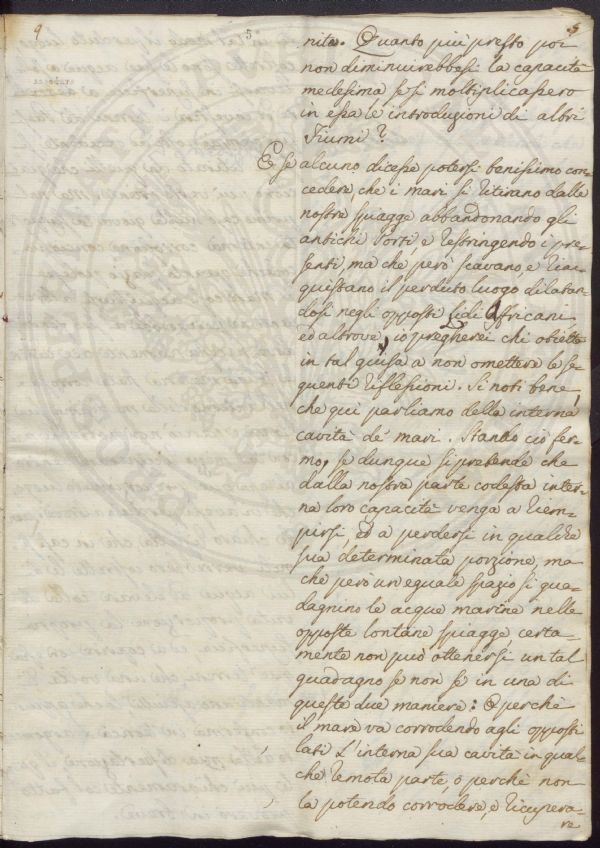 9 5 5
nita. Quanto più presto poi
non diminuirebbesi la capacità
medesima se si moltiplicassero
in essa le introduzioni di altri
Fiumi?
E se alcuno dicesse potersi benissimo con=
cedere, che i mari si ritirano dalle
nostre spiagge abbandonando gli
antichi Porti, e restringendo i pre=
senti, ma che però scavano, e riac=
quistano il perduto luogo dilatan=
dosi negli opposti Lidi Affricani,
ed altrove, io pregherei chi obietta
in tal guisa a non omettere le se=
guenti riflessioni. Si noti bene,
che qui parliamo della interna
cavità de' mari. Stando ciò fer=
mo, se dunque si pretende che
dalla nostra parte codesta inter=
na loro capacità venga a riem=
pirsi, ed a perdersi in qualche
sua determinata porzione, ma
che però un eguale spazio si gua=
dagnino le acque marine nelle
opposte lontane spiagge, certa=
mente non può ottenersi un tal
guadagno se non se in una di
queste due maniere: O perchè
il mare va corrodendo agli opposti
lati l'interna sua cavità in qual=
che remota parte, o perchè non
la potendo corrodere, e ricupera=
re